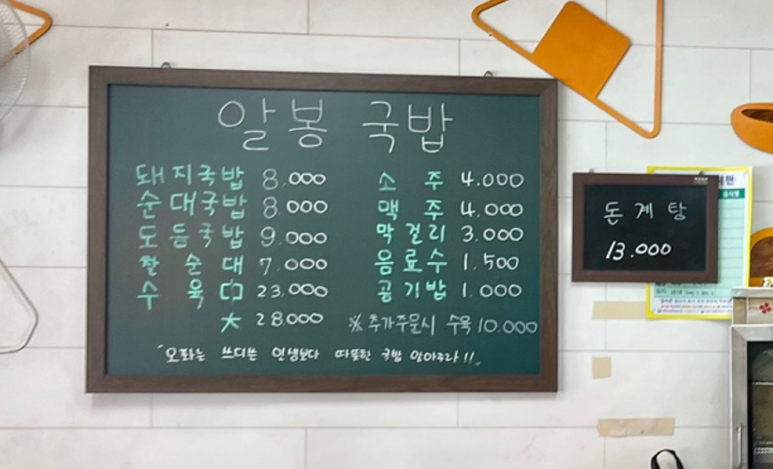 알봉 국밥
돼지국밥 8.000
순대국밥 8.000
모듬국밥 9.000
찰순대 7.000
수육 中 23.000
大 28.000
소주 4.000
맥주 4.000
막걸리 3.000
음료수 1.500
공기밥 1.000
※ 추가주문시 수육 10.000
쓰디쓴 인생보다 따뜻한 국밥
돈계탕
13.000